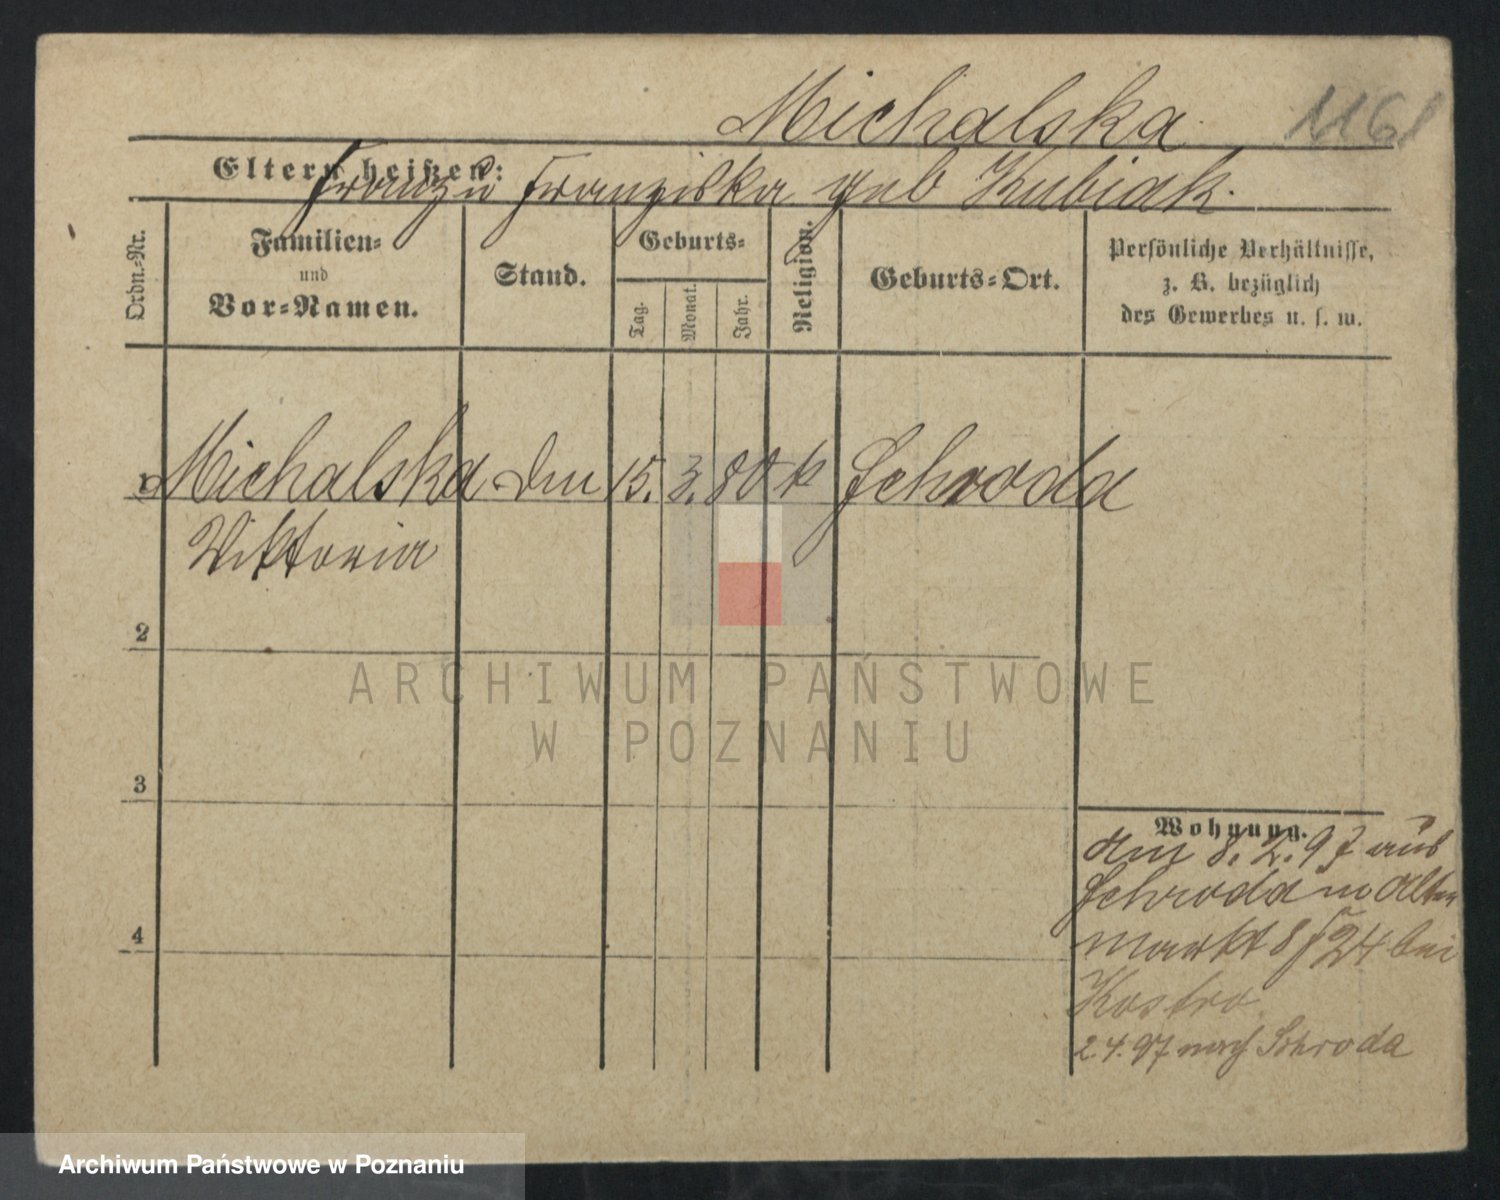 Michalska 1161
Eltern heißen: Franz u Franziska geb Kubiak.
Ordn.-Nr.
Familien-
und
Vor-Namen.
Stand.
Geburts-
Tag.
Monat.
Jahr.
Religion.
Geburts-Ort.
Persönliche Verhältnisse,
z. B. bezüglich
des Gewerbes u. s. w.
1 Michalska 15. 3. 80 k Schroda
Viktoria
2
3
4
Wohnung.
am 8. 2. 97 aus
Schroda n Alten
markt 8 24 bei
Kostro
2 4. 97 nach Schroda
ARCHIWUM PAŃSTWOWE
W POZNANIU
Archiwum Państwowe w Poznaniu